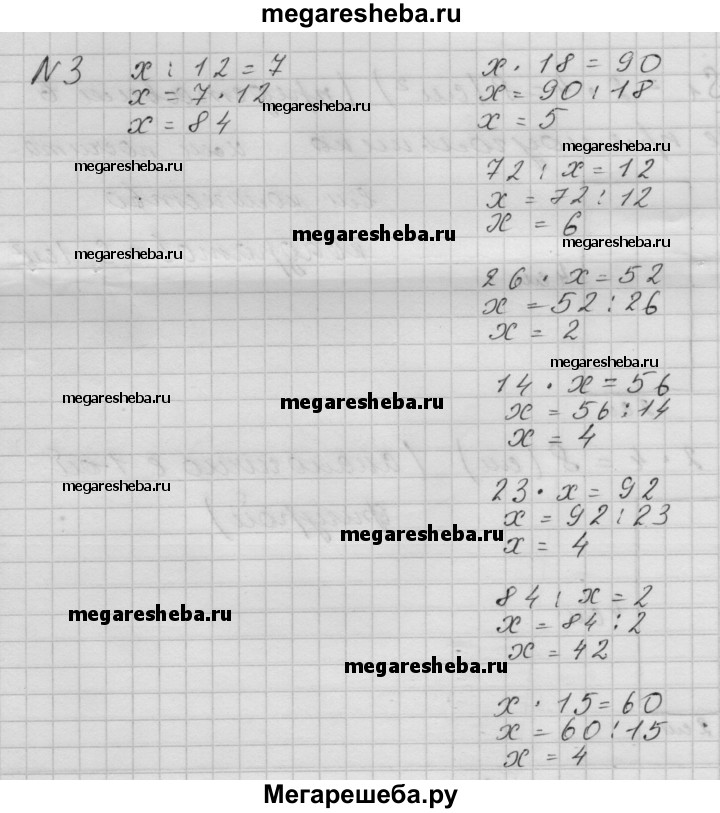 megaresheba.ru
N3
x : 12 = 7
x = 7 · 12
x = 84
megaresheba.ru
megaresheba.ru
megaresheba.ru
megaresheba.ru
megaresheba.ru
megaresheba.ru
megaresheba.ru
x · 18 = 90
x = 90 : 18
x = 5
megaresheba.ru
72 : x = 12
x = 72 : 12
x = 6
megaresheba.ru
26 · x = 52
x = 52 : 26
x = 2
megaresheba.ru
megaresheba.ru
14 · x = 56
x = 56 : 14
x = 4
23 · x = 92
x = 92 : 23
x = 4
megaresheba.ru
84 : x = 2
x = 84 : 2
x = 42
megaresheba.ru
x · 15 = 60
x = 60 : 15
x = 4
Мегарешеба.ру